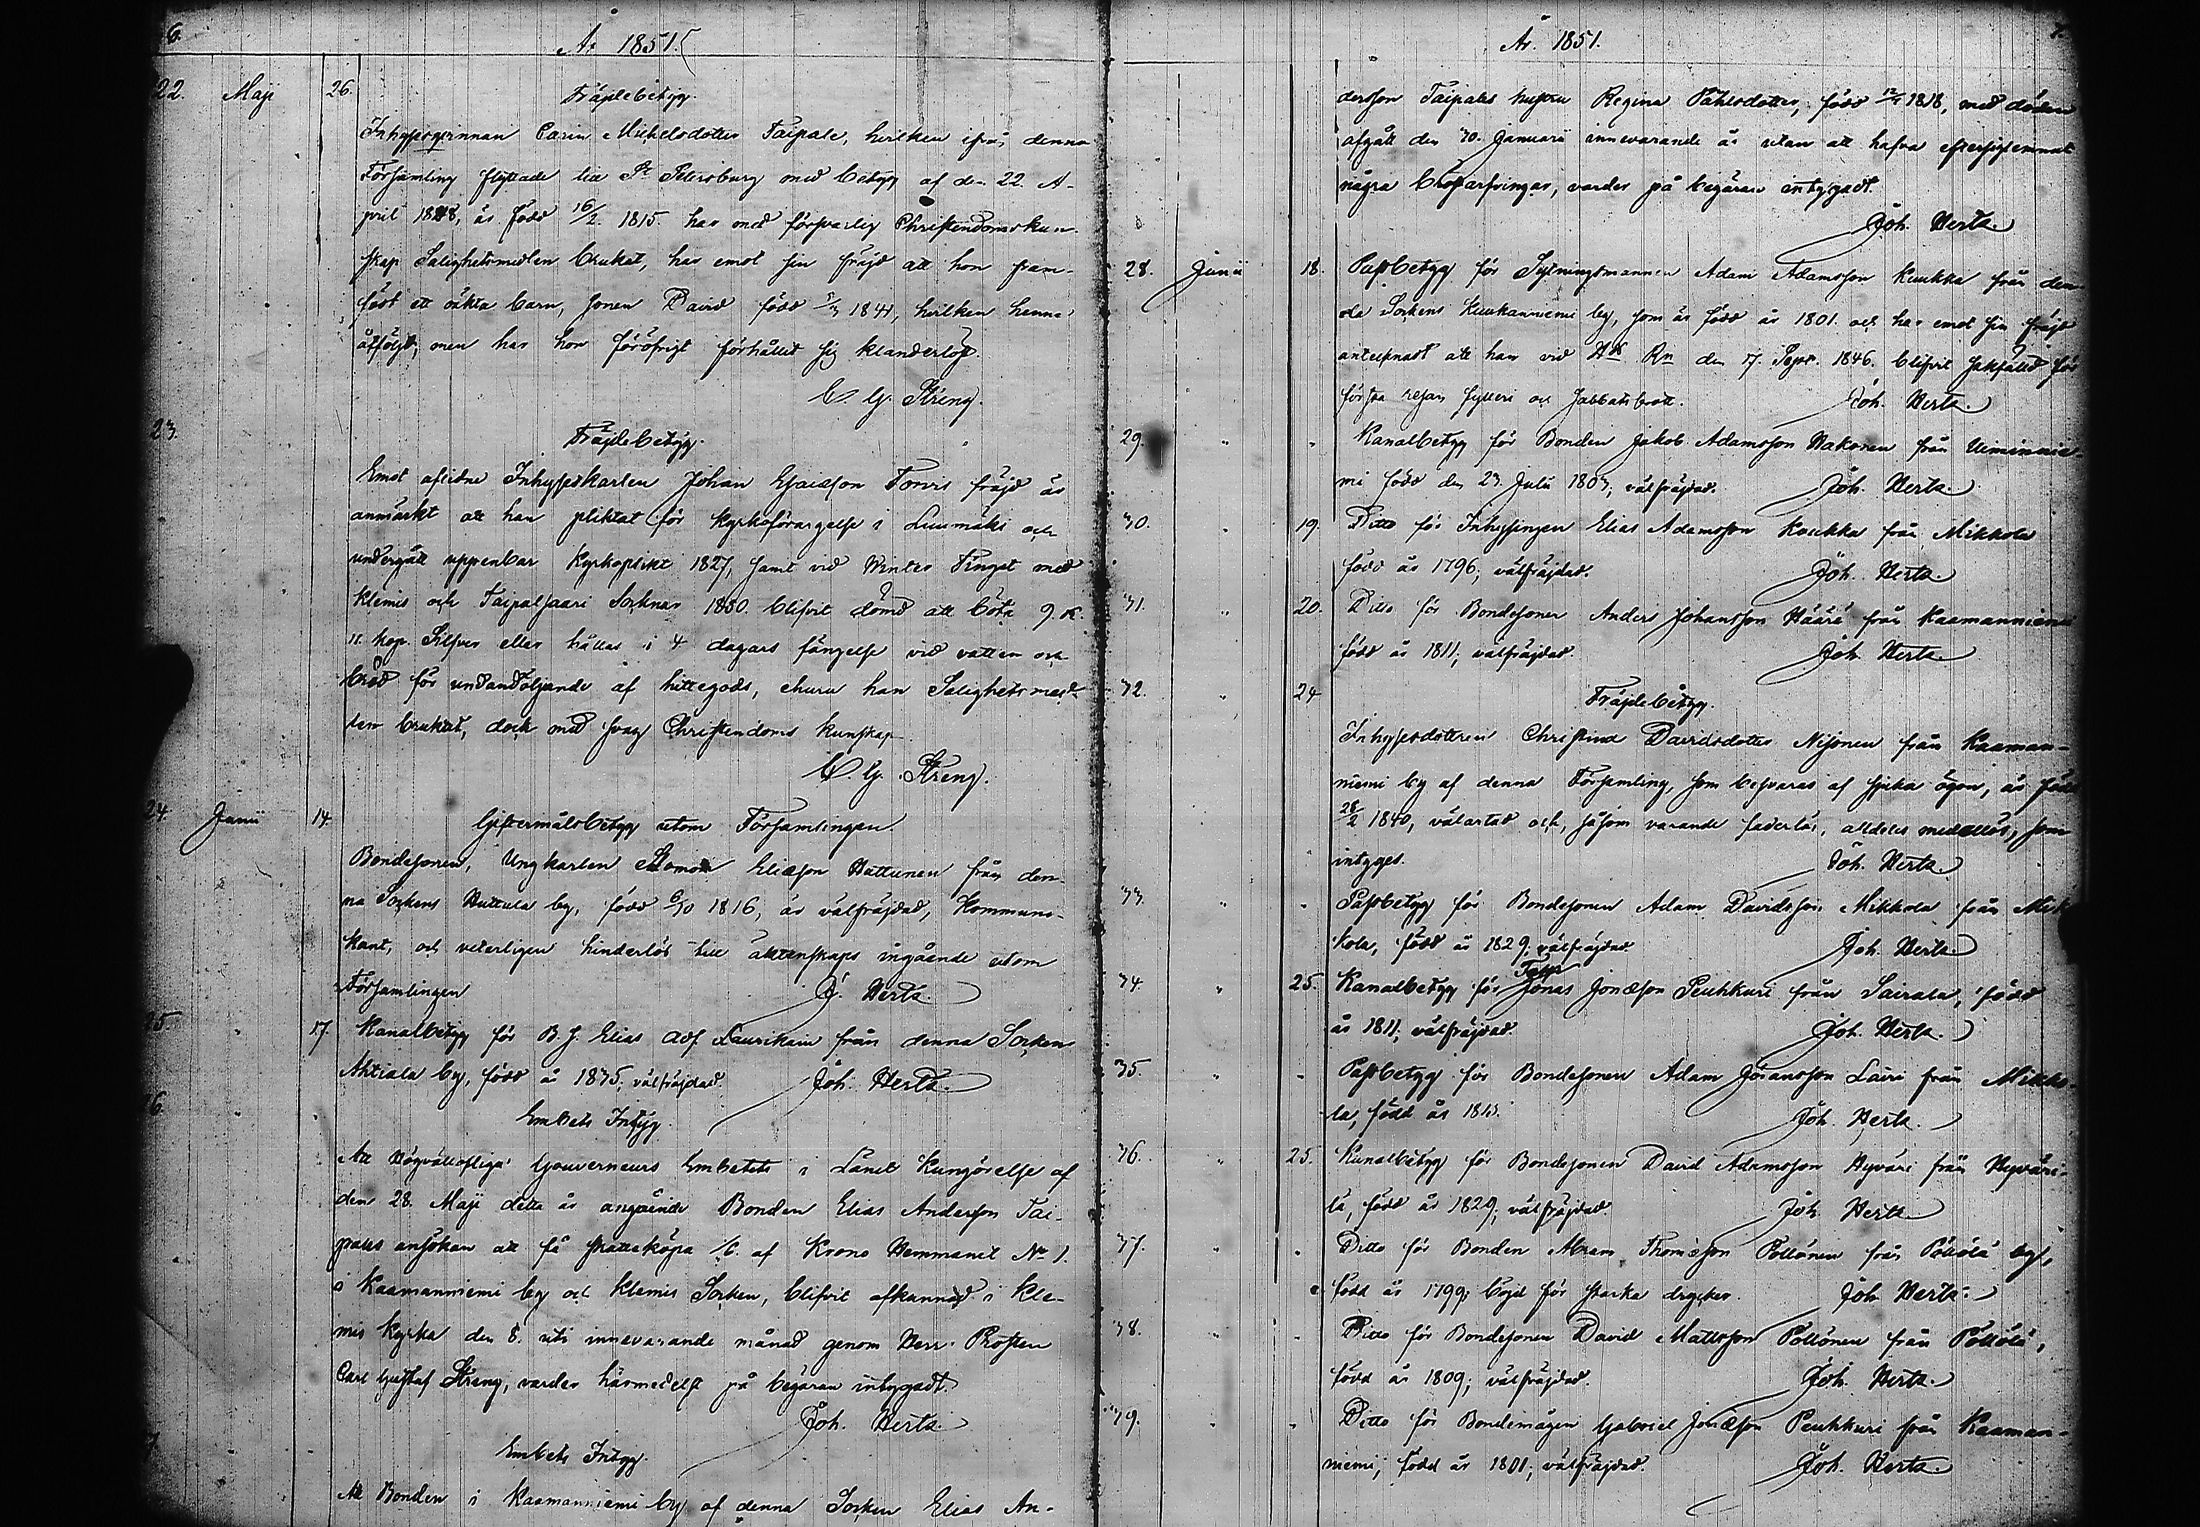 6.
År 1851.
22. Maji 26. Fräjdebetyg
Inhysesqvinnan Carin Michelsdotter Taipale, hvilken ifrån denna
Församling flyttade till St Petersburg med betyg af den 22. A-
pril 1848, är född 16/2 1815. har med försvarlig Christendomskun-
skap Salighetsmedlen brukat, har emot sin fräjd att hon fram-
födt ett oäkta barn, sonen David född 1844, hvilken henne
åtföljt; men har hon föröfrigt förhållit sig klanderlöst.
C. G. Streng.
23. Fräjdebetyg.
Emot aflidne Inhyseskarlen Johan Tommi fräjd är
anmärkt att han pliktat för kyrkoförargelse i Luumäki och
undergått uppenbar Kyrkoplikt 1827, samt vid Winter Tinget med
Klemis och Taipalsaari Socknar 1850. blifvit dömd att böta 9. R.
11. kop. Silfver eller hållas i 4 dagars fängelse vid vatten och
bröd för undandöljande af hittegods, ehuru han Salighetsmed-
len brukat, dock med svag Christendoms kunskap
C. G. Streng.
24. Junii 14. Giftermålsbetyg utom Församlingen.
Bondesonen, Ungkarlen Simon Eliasson Hattunen från den-
na Sockens Huttula by, född 6/10 1816, är välfräjdad, Kommuni-
kant, och veterligen hinderlös till äktenskaps ingående utom
Församlingen J. Hertz.
25 17. Kanalbetyg för B. J. Elias Adf Laurikain från denna Socken
Ahtiala by, född år 1835, välfräjdad. Joh. Hertz.
26. Embets Intyg.
Att Högvällofliga Gouverneurs Embetets i Länet Kungörelse af
den 28. Maji detta år angående Bonden Elias Andersson Tai-
pales ansökan att få skatteköpa af Krono Hemmanet No 1.
i Kaamanniemi by och Klemis Socken, blifvit afkunnad i Kle-
mis Kyrka den 8. uti innevarande månad genom Herr Prosten
Carl Gustaf Streng, varder härmedelst på begäran intygadt.
Joh. Hertz.
7 Embets Intyg.
Att Bonden i Kaamanniemi by af denna Socken Elias An-
År. 1851.
7.
dersson Taipales hustru Regina Påhlsdotter, född 1818, med döden
afgått den 30. Januarii innevarande år utan att hafva efterlemnat
några bröstarfvingar, varder på begäran intygadt.
Joh. Hertz.
28. Junii 18. Passbetyg för Sytningsmannen Adam Adamsson Kuukka från den-
na Sockens Kuukanniemi by, som är född år 1801. och har emot sin fräjd
antecknadt att han vid den 17. Sept. 1846. blifvit sakfälld för
första resan fylleri och Sabbatsbrott. Joh. Hertz.
29. " " Kanalbetyg för Bonden Jakob Adamsson Hakonen från Uiminnie-
mi född den 23. Julii 1803, välfräjdad. Joh. Hertz.
30. " 19. Ditto för Inhysingen Elias Adamsson Kaukka från Mikkola
född år 1796; välfräjdad. Joh. Hertz.
31. " 20. Ditto för Bondesonen Anders Johansson Hääre från Kaamanniemi
född år 1811; välfräjdad. Joh. Hertz.
32. " 24 Fräjdebetyg.
Inhysesdottren Christina Davidsdotter Nisonen från Kaaman-
niemi by af denna Församling, som besvaras af sjuka ögon, är född
28/2 1840, välartad och, såsom varande faderlös, alldeles medellös, som
intyges. Joh. Hertz.
33. " - Passbetyg för Bondesonen Adam Davidsson Mikkola från Mik-
kola, född år 1829. välfräjdad. Joh. Hertz.
34 " 25. Kanalbetyg för Torp Jonas Jonasson Peuhkuri från Sairala, född
år 1811, välfräjdad. Joh. Hertz.
35. " - Passbetyg för Bondesonen Adam Göransson Lairi från Mikko-
la, född år Joh. Hertz.
36. " 25. Kanalbetyg för Bondesonen David Adamsson Hyväri från Hyväri-
lä, född år 1829, välfräjdad. Joh. Hertz.
37. " " Ditto för Bonden Abram Thomasson Pöllönen från Pöllölä by,
född år 1799; böjd för starka drycker. Joh. Hertz.
38. " - Ditto för Bondesonen David Mattsson Pöllönen från Pöllölä,
född år 1809; välfräjdad. Joh. Hertz.
39. " " Ditto för Bondemågen Gabriel Jonasson Peuhkuri från Kaaman-
niemi, född år 1801; välfräjdad. Joh. Hertz.